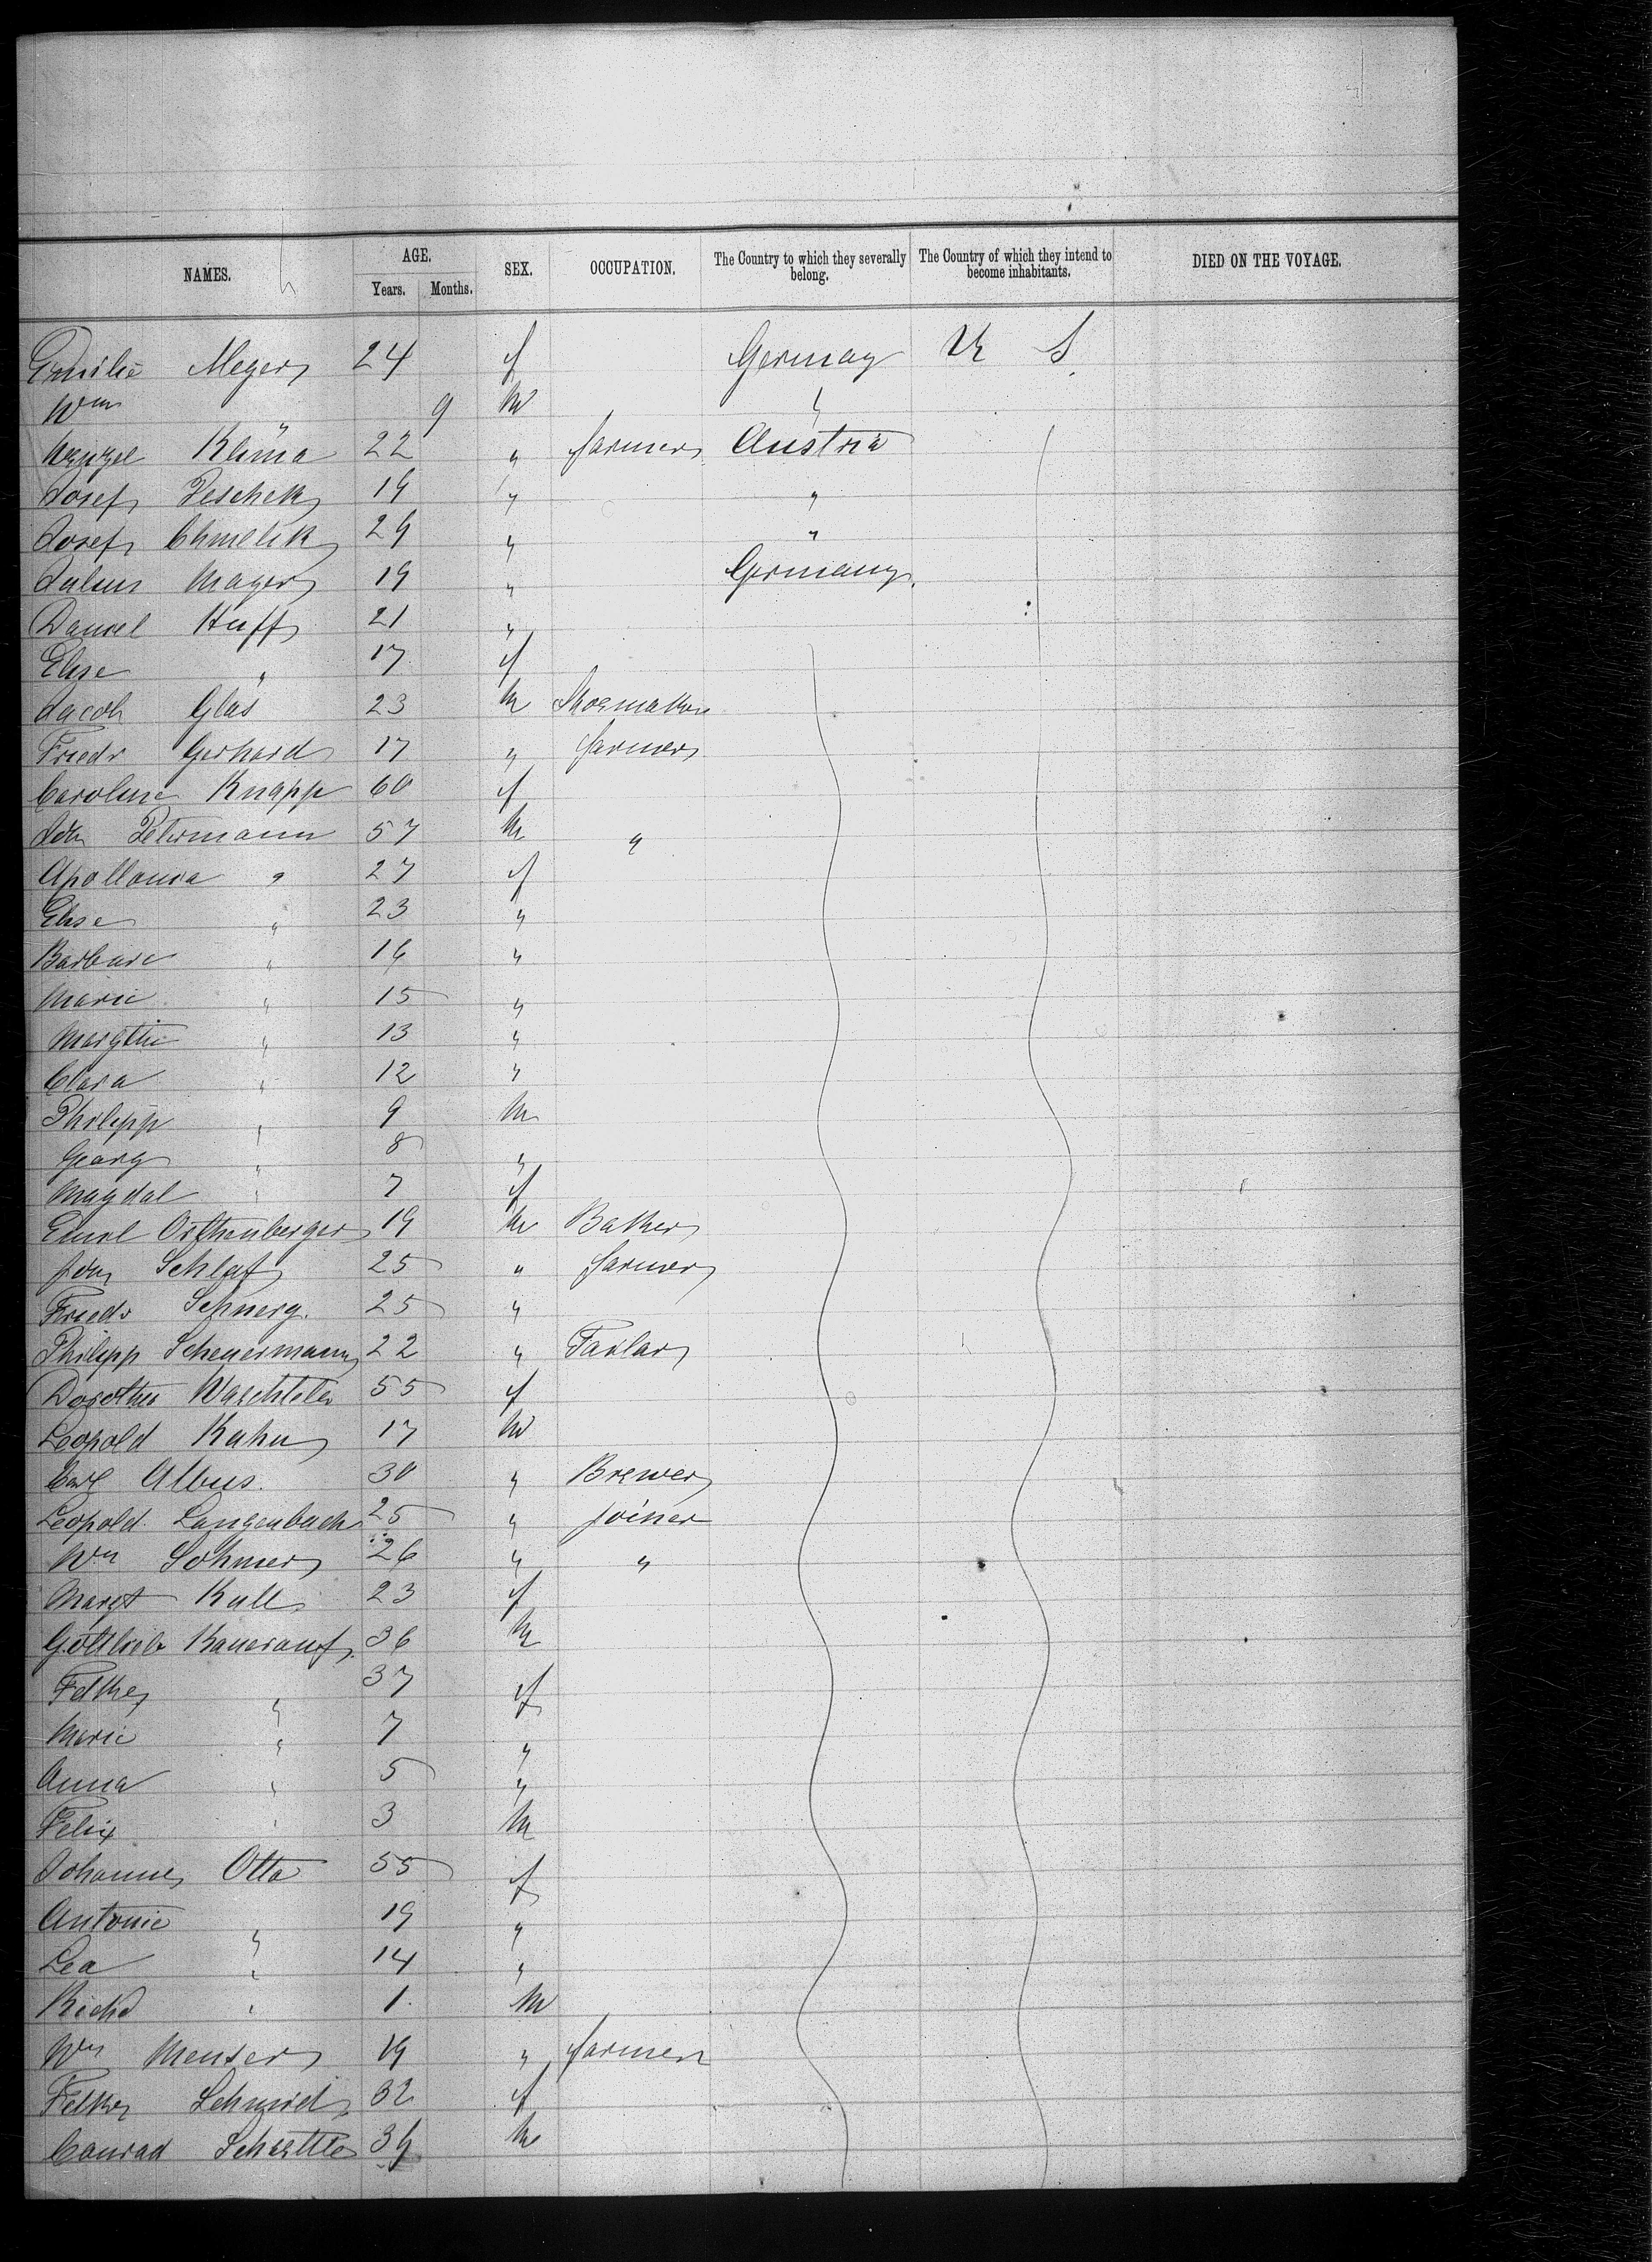 NAMES. AGE. SEX. OCCUPATION. The Country to which they severally belong. The Country of which they intend to become inhabitants. DIED ON THE VOYAGE.
Years. Months.
Emilie Meyer 24 f Germay U S
Wm " 9 m "
Wenzel Klima 22 " farmer Austria
Josef Peschek 19 " "
Josef Chmelik 29 " "
Julius Mayer 19 " Germany
Daniel Huff 21 "
Elise " 17 f
Jacob Glas 23 m Shoemaker
Friedr Gerhard 17 " farmer
Caroline Knapp 60 f
Petermann 57 m "
Apollonia " 27 f
Elise " 23 "
Barbara " 16 "
Marie " 15 "
Margthe " 13 "
Clara " 12 "
Philipp " 9 m
Georg " 8 "
Magdal " 7 f
Emil Orthenberger 19 m Baker
Schlaf 25 " farmer
Friedr 25 "
Philipp Scheuermann 22 " Tailar
Dorothea 55 f
Leopold Kahn 17 m
Carl Albus. 30 " Brewer
Leopold Langenbach 25 " joiner
Wm Sohmer 26 " "
Margt Kull 23 f
Gottlieb 36 m
37 f
Marie " 7 "
Anna " 5 "
Felix " 3 m
Johanne Otto 55 f
Antonie " 19 "
Lea " 14 "
Richd " 1. m
Wm Menser 19 " farmer
Schmid 32 f
Conrad 39 m